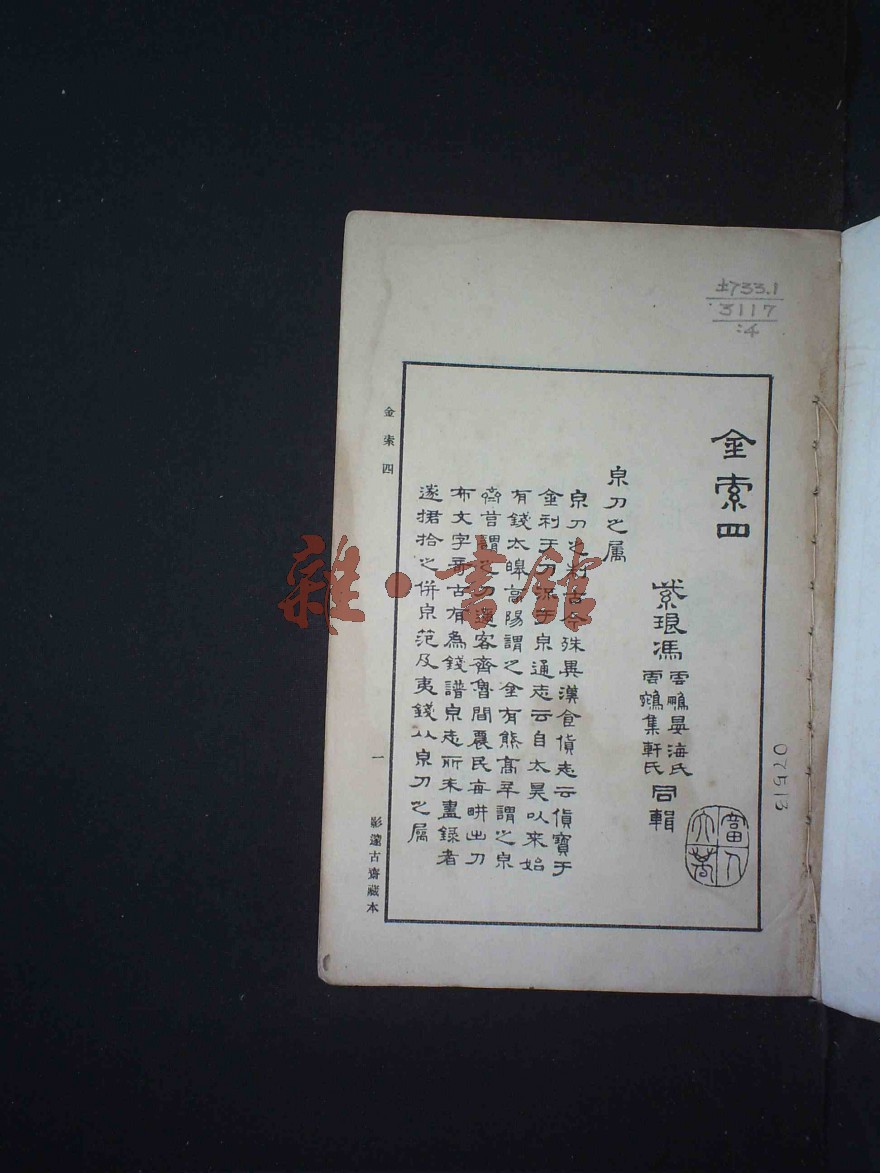 土733.1
3117
:4
金索四
紫琅馮
雲鵬晏海氏
雲鵷集軒氏
同輯
富人大萬
07513
泉刀之屬
泉刀之制古今殊異漢食貨志云貨寶于
金利于刀流于泉通志云自太昊以來始
有錢太皞高陽謂之金有熊高辛謂之泉
齊莒謂之刀邇客齊魯間農民每畊出刀
布文字奇古有為錢譜泉志所未盡錄者
遂捃拾之併泉范及夷錢以泉刀之屬
金索四
一
影邃古齋藏本
雜·書館